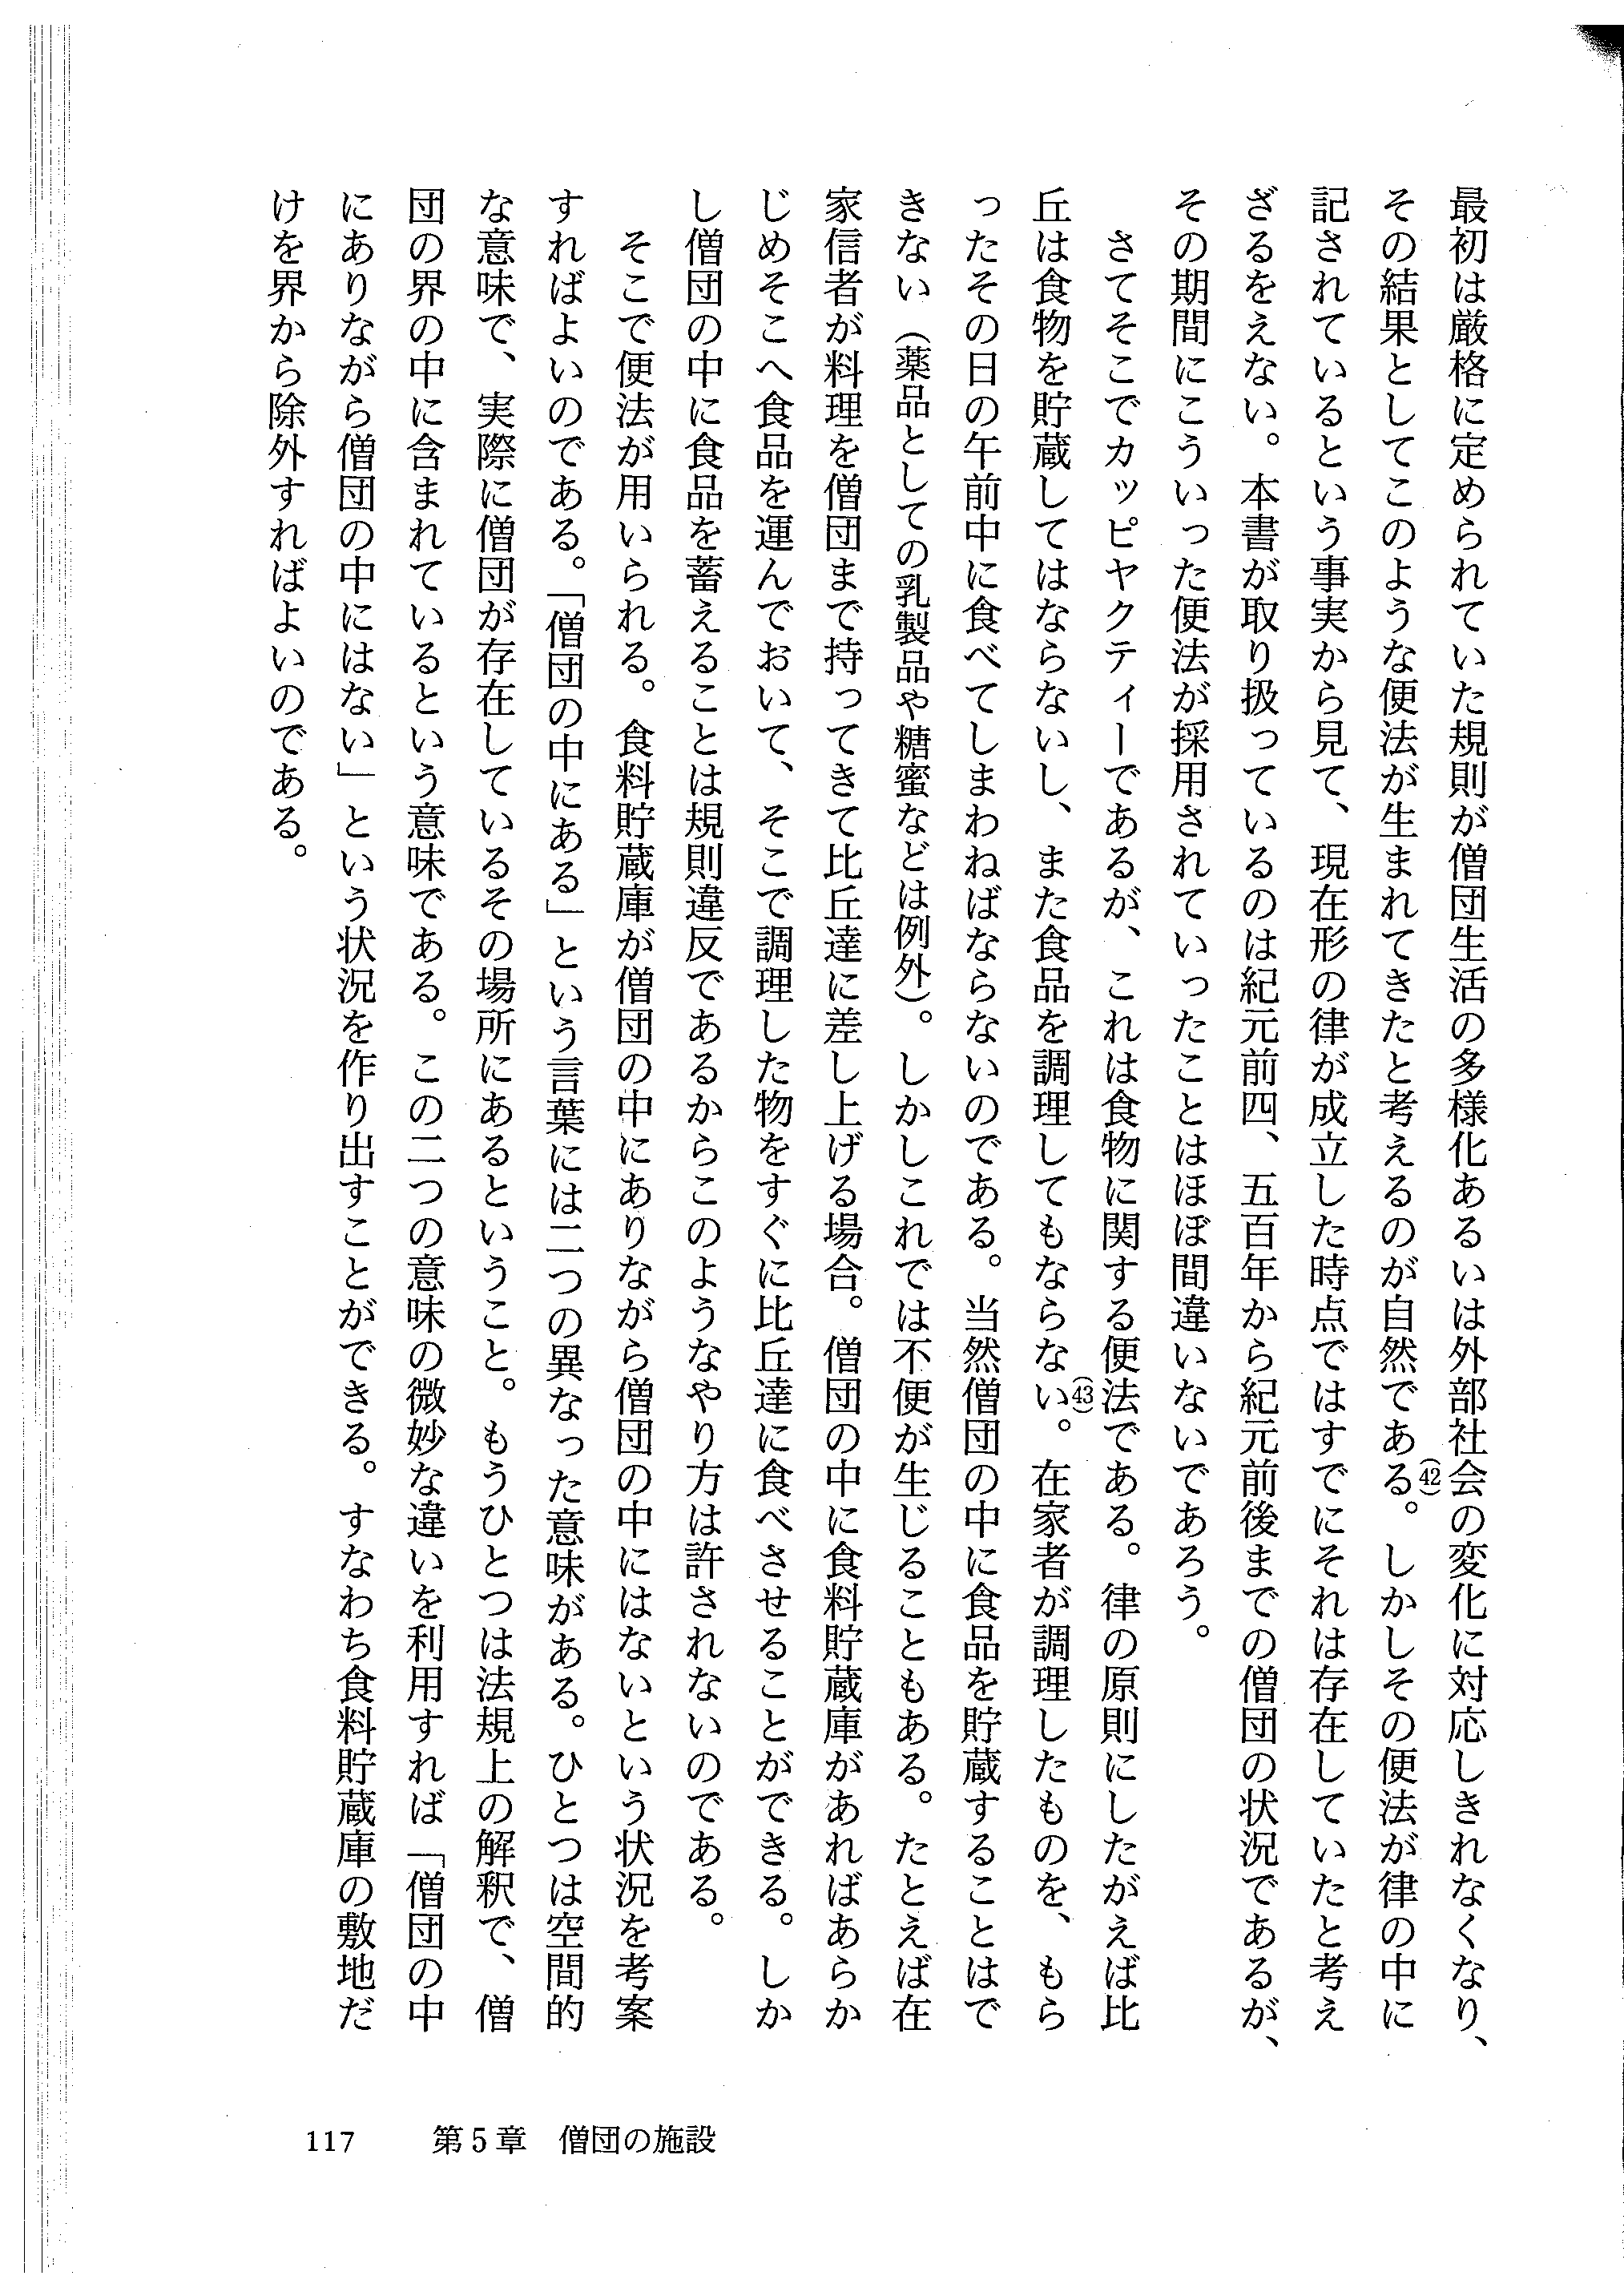 最初は厳格に定められていた規則が僧団生活の多様化あるいは外部社会の変化に対応しきれなくなり、
その結果としてこのような便法が生まれてきたと考えるのが自然である(42)。しかしその便法が律の中に
記されているという事実から見て、現在形の律が成立した時点ではすでにそれは存在していたと考え
ざるをえない。本書が取り扱っているのは紀元前四、五百年から紀元前後までの僧団の状況であるが、
その期間にこういった便法が採用されていったことはほぼ間違いないであろう。
さてそこでカッピヤクティーであるが、これは食物に関する便法である。律の原則にしたがえば比
丘は食物を貯蔵してはならないし、また食品を調理してもならない(43)。在家者が調理したものを、もら
ったその日の午前中に食べてしまわねばならないのである。当然僧団の中に食品を貯蔵することはで
きない（薬品としての乳製品や糖蜜などは例外）。しかしこれでは不便が生じることもある。たとえば在
家信者が料理を僧団まで持ってきて比丘達に差し上げる場合。僧団の中に食料貯蔵庫があればあらか
じめそこへ食品を運んでおいて、そこで調理した物をすぐに比丘達に食べさせることができる。しか
し僧団の中に食品を蓄えることは規則違反であるからこのようなやり方は許されないのである。
そこで便法が用いられる。食料貯蔵庫が僧団の中にありながら僧団の中にはないという状況を考案
すればよいのである。「僧団の中にある」という言葉には二つの異なった意味がある。ひとつは空間的
な意味で、実際に僧団が存在しているその場所にあるということ。もうひとつは法規上の解釈で、僧
団の界の中に含まれているという意味である。この二つの意味の微妙な違いを利用すれば「僧団の中
にありながら僧団の中にはない」という状況を作り出すことができる。すなわち食料貯蔵庫の敷地だ
けを界から除外すればよいのである。
117 第5章 僧団の施設